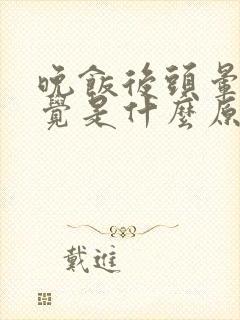 晚飯後頭暈
覺是什麼原
戴進